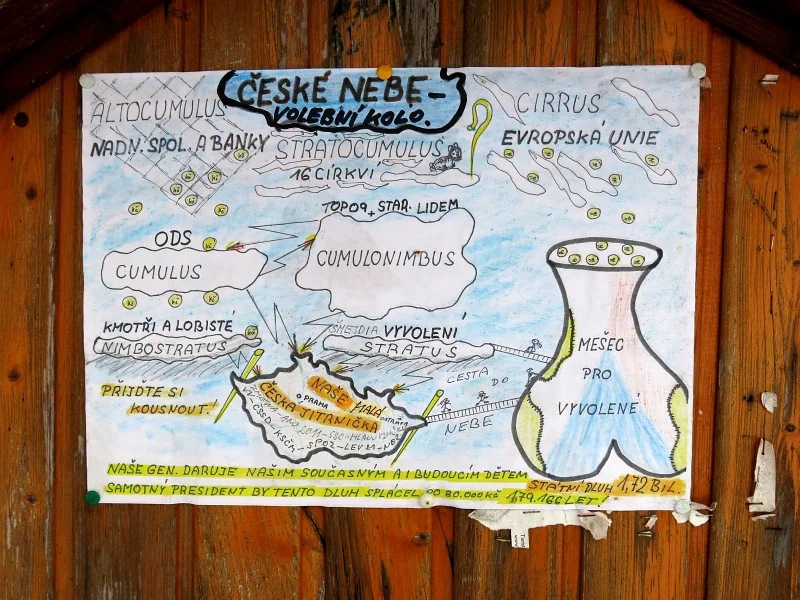 ČESKÉ NEBE –
VOLEBNÍ KOLO.
ALTOCUMULUS
NADN. SPOL. A BANKY
STRATOCUMULUS
16 CÍRKVÍ
CIRRUS
EVROPSKÁ UNIE
ODS
CUMULUS
TOP09 + STAR. LIDEM
CUMULONIMBUS
KMOTŘI A LOBISTÉ
NIMBOSTRATUS
VYVOLENÍ
STRATUS
PŘIJĎTE SI
KOUSNOUT!
NAŠE MALÁ
PRAHA
OSTRAVA
ČESKÁ JITRNIČKA
CESTA DO
NEBE
MĚŠEC
PRO
VYVOLENÉ
NAŠE GEN. DARUJE NAŠIM SOUČASNÝM A I BUDOUCÍM DĚTEM
STÁTNÍ DLUH 1,72 BIL.
SAMOTNÝ PRESIDENT BY TENTO DLUH SPLÁCEL PO 80.000 KČ 179.166 LET!